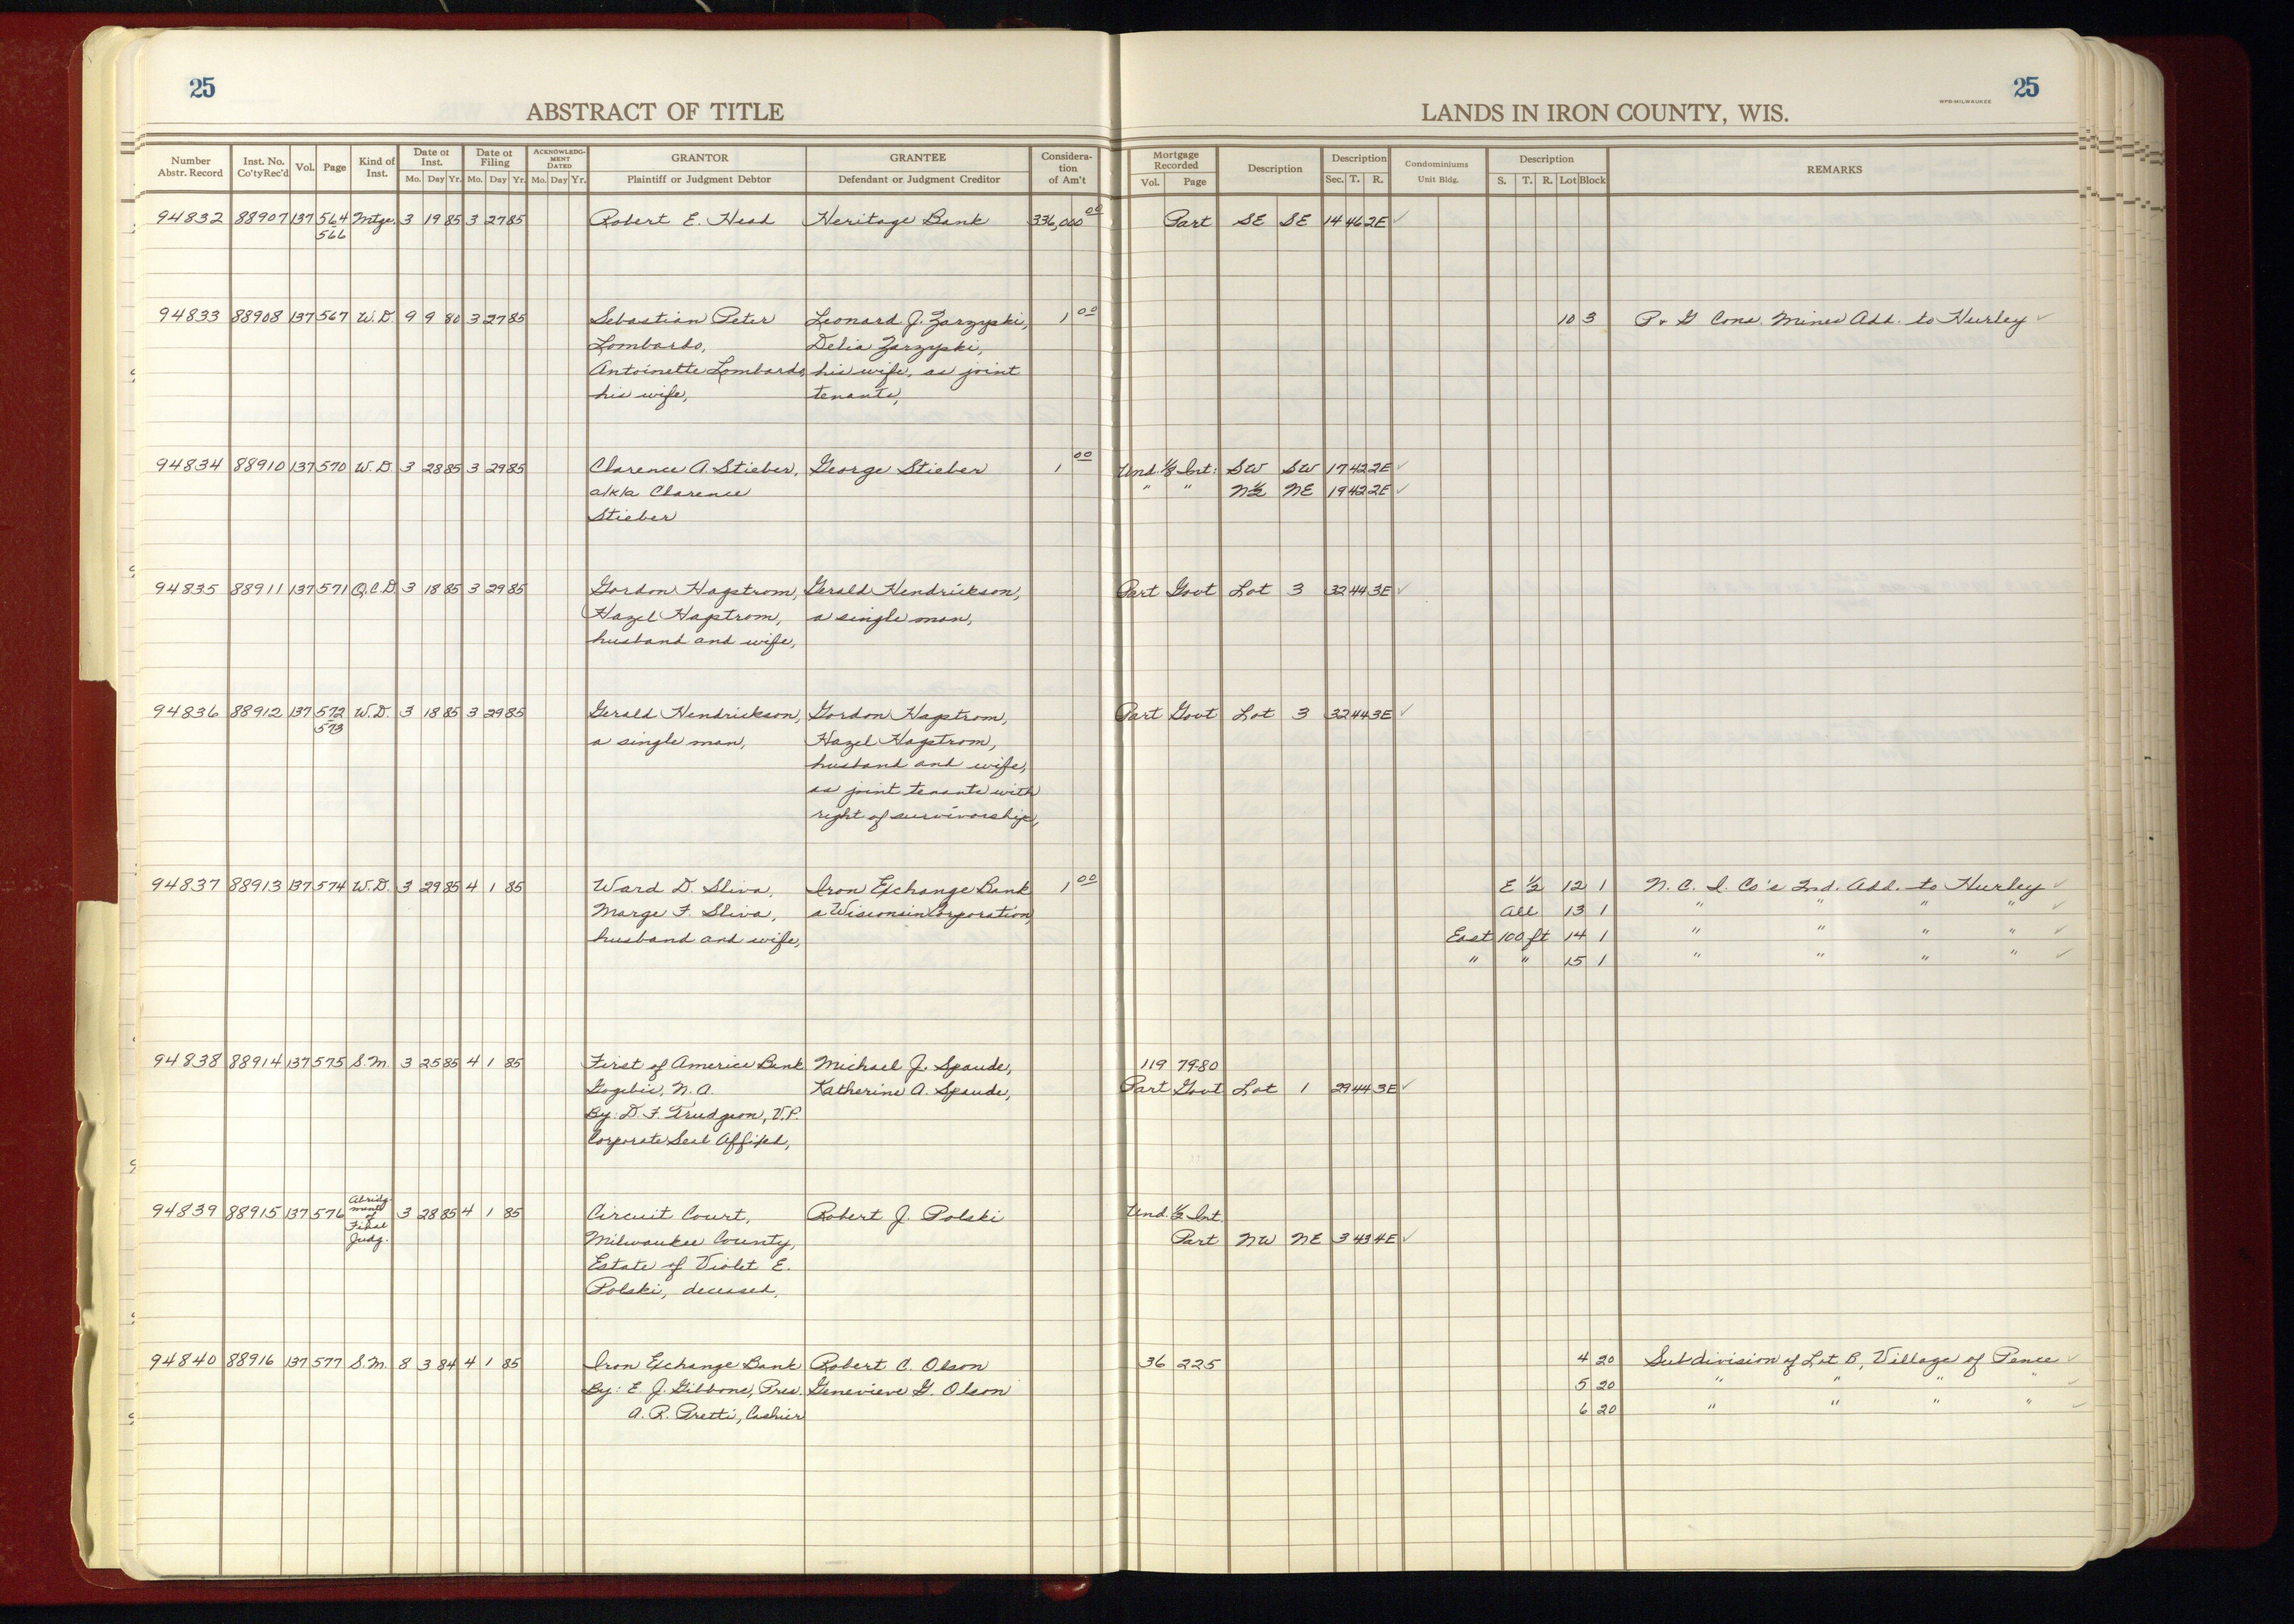 25
25
ABSTRACT OF TITLE
LANDS IN IRON COUNTY, WIS.
WPB-MILWAUKEE
Number Abstr. Record Inst. No. Co'ty Rec'd Vol. Page Kind of Inst. Date of Inst. Mo. Day Yr. Date of Filing Mo. Day Yr. ACKNOWLEDGMENT DATED Mo. Day Yr. GRANTOR Plaintiff or Judgment Debtor GRANTEE Defendant or Judgment Creditor Consideration of Am't Mortgage Recorded Vol. Page Description Description Sec. T. R. Condominiums Unit Bldg. Description S. T. R. Lot Block REMARKS
94832 88907 137 564 Mtge. 3 19 85 3 27 85 Robert E. Head Heritage Bank 336,000 00 Part SE SE 14 46 2E ✓
566
94833 88908 137 567 W.D. 9 9 80 3 27 85 Sebastian Peter Leonard J. Zarzyski, 1 00 10 3 P. & G Cons. Mines Add. to Hurley ✓
Lombardo, Delia Zarzyski,
Antoinette Lombardo, his wife, as joint
his wife, tenants,
94834 88910 137 570 W.D. 3 28 85 3 29 85 Clarence A. Stieber, George Stieber 1 00 Und. 1/8 Int: SW SW 17 42 2E ✓
a/k/a Clarence " " N½ NE 19 42 2E ✓
Stieber
94835 88911 137 571 Q.C.D. 3 18 85 3 29 85 Gordon Hagstrom, Gerald Hendrickson, Part Govt Lot 3 32 44 3E ✓
Hazel Hagstrom, a single man,
husband and wife,
94836 88912 137 572 W.D. 3 18 85 3 29 85 Gerald Hendrickson, Gordon Hagstrom, Part Govt Lot 3 32 44 3E ✓
573 a single man, Hazel Hagstrom,
husband and wife,
as joint tenants with
right of survivorship,
94837 88913 137 574 W.D. 3 29 85 4 1 85 Ward D. Sliva, Iron Exchange Bank 1 00 E ½ 12 1 N. C. I. Co's 2nd. Add. to Hurley ✓
Marge F. Sliva, a Wisconsin Corporation, All 13 1 " " " " ✓
husband and wife, East 100 ft 14 1 " " " " ✓
" " 15 1 " " " " ✓
94838 88914 137 575 S.M. 3 25 85 4 1 85 First of America Bank Michael J. Spaude, 119 79-80
Gogebic, N.A. Katherine A. Spaude, Part Govt Lot 1 29 44 3E ✓
By: D. F. Trudgeon, V.P.
Corporate Seal Affixed,
94839 88915 137 576 Abridgment of Final Judg. 3 28 85 4 1 85 Circuit Court, Robert J. Polski Und. ½ Int.
Milwaukee County, Part NW NE 3 43 4E ✓
Estate of Violet E.
Polski, deceased,
94840 88916 137 577 S.M. 8 3 84 4 1 85 Iron Exchange Bank Robert C. Olson 36 225 4 20 Subdivision of Lot B, Village of Pence ✓
By: E. J. Gibbons, Pres. Genevieve G. Olson 5 20 " " " " ✓
A. R. Pretti, Cashier 6 20 " " " " ✓